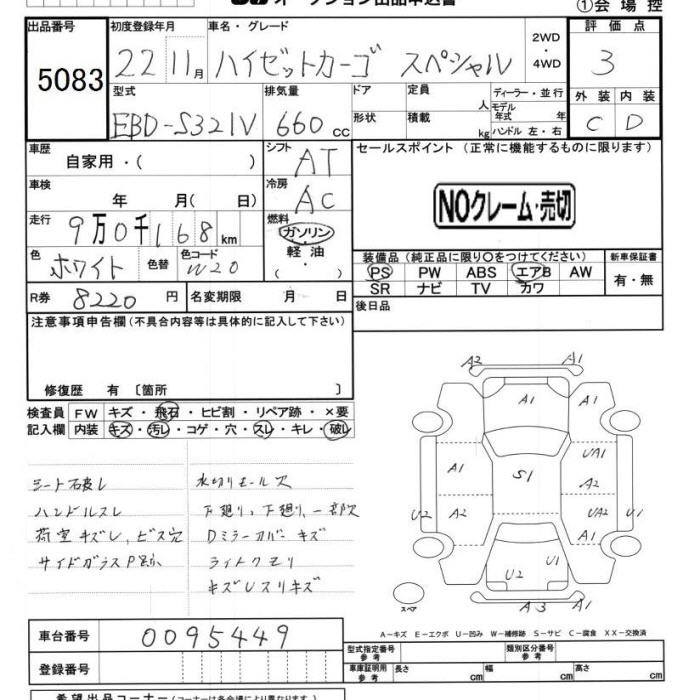 ①会場控
出品番号 初度登録年月 車名・グレード 2WD・4WD 評価点
5083 22 11月 ハイゼットカーゴ スペシャル 3
型式 排気量 ドア 定員 人 ディーラー・並行 外装 内装
EBD-S321V 660cc 形状 積載 kg モデル年式 年 ハンドル 左・右 C D
車歴 自家用・( ) シフト AT セールスポイント (正常に機能するものに限ります)
車検 年 月( 日) 冷房 AC
NOクレーム・売切
走行 9万0千168km 燃料 ガソリン
軽油
( )
色 ホワイト 色替 色コード W20
装備品 (純正品に限り○をつけてください) 新車保証書
PS PW ABS エアB AW 有・無
SR ナビ TV カワ
R券 8220円 名変期限 月 日 後日品
注意事項申告欄(不具合内容等は具体的に記入して下さい)
修復歴 有 〔箇所 〕
検査員 FW キズ・飛石・ヒビ割・リペア跡・×要
記入欄 内装 キズ・汚レ・コゲ・穴・スレ・キレ・破レ
シート破レ 水切りモール欠
ハンドルスレ 下廻り、下廻り、一部欠
荷室キズレ、ビス穴 Dミラーカバーキズ
サイドガラス
ライトクモリ
キズレスリキズ
A2 A1
A1 A1
A1 UA1
S1 A2
U2 A2 UA2 U1
A1
U2 U1
スペア A3 A1
A-キズ E-エクボ U-凹み W-補修跡 S-サビ C-腐食 XX-交換済
車台番号 0095449
型式指定番号 参考 類別区分番号 参考
登録番号 車庫証明用 参考 長さ cm 幅 cm 高さ cm
希望出品コーナー(コーナーは各会場により異なります。)